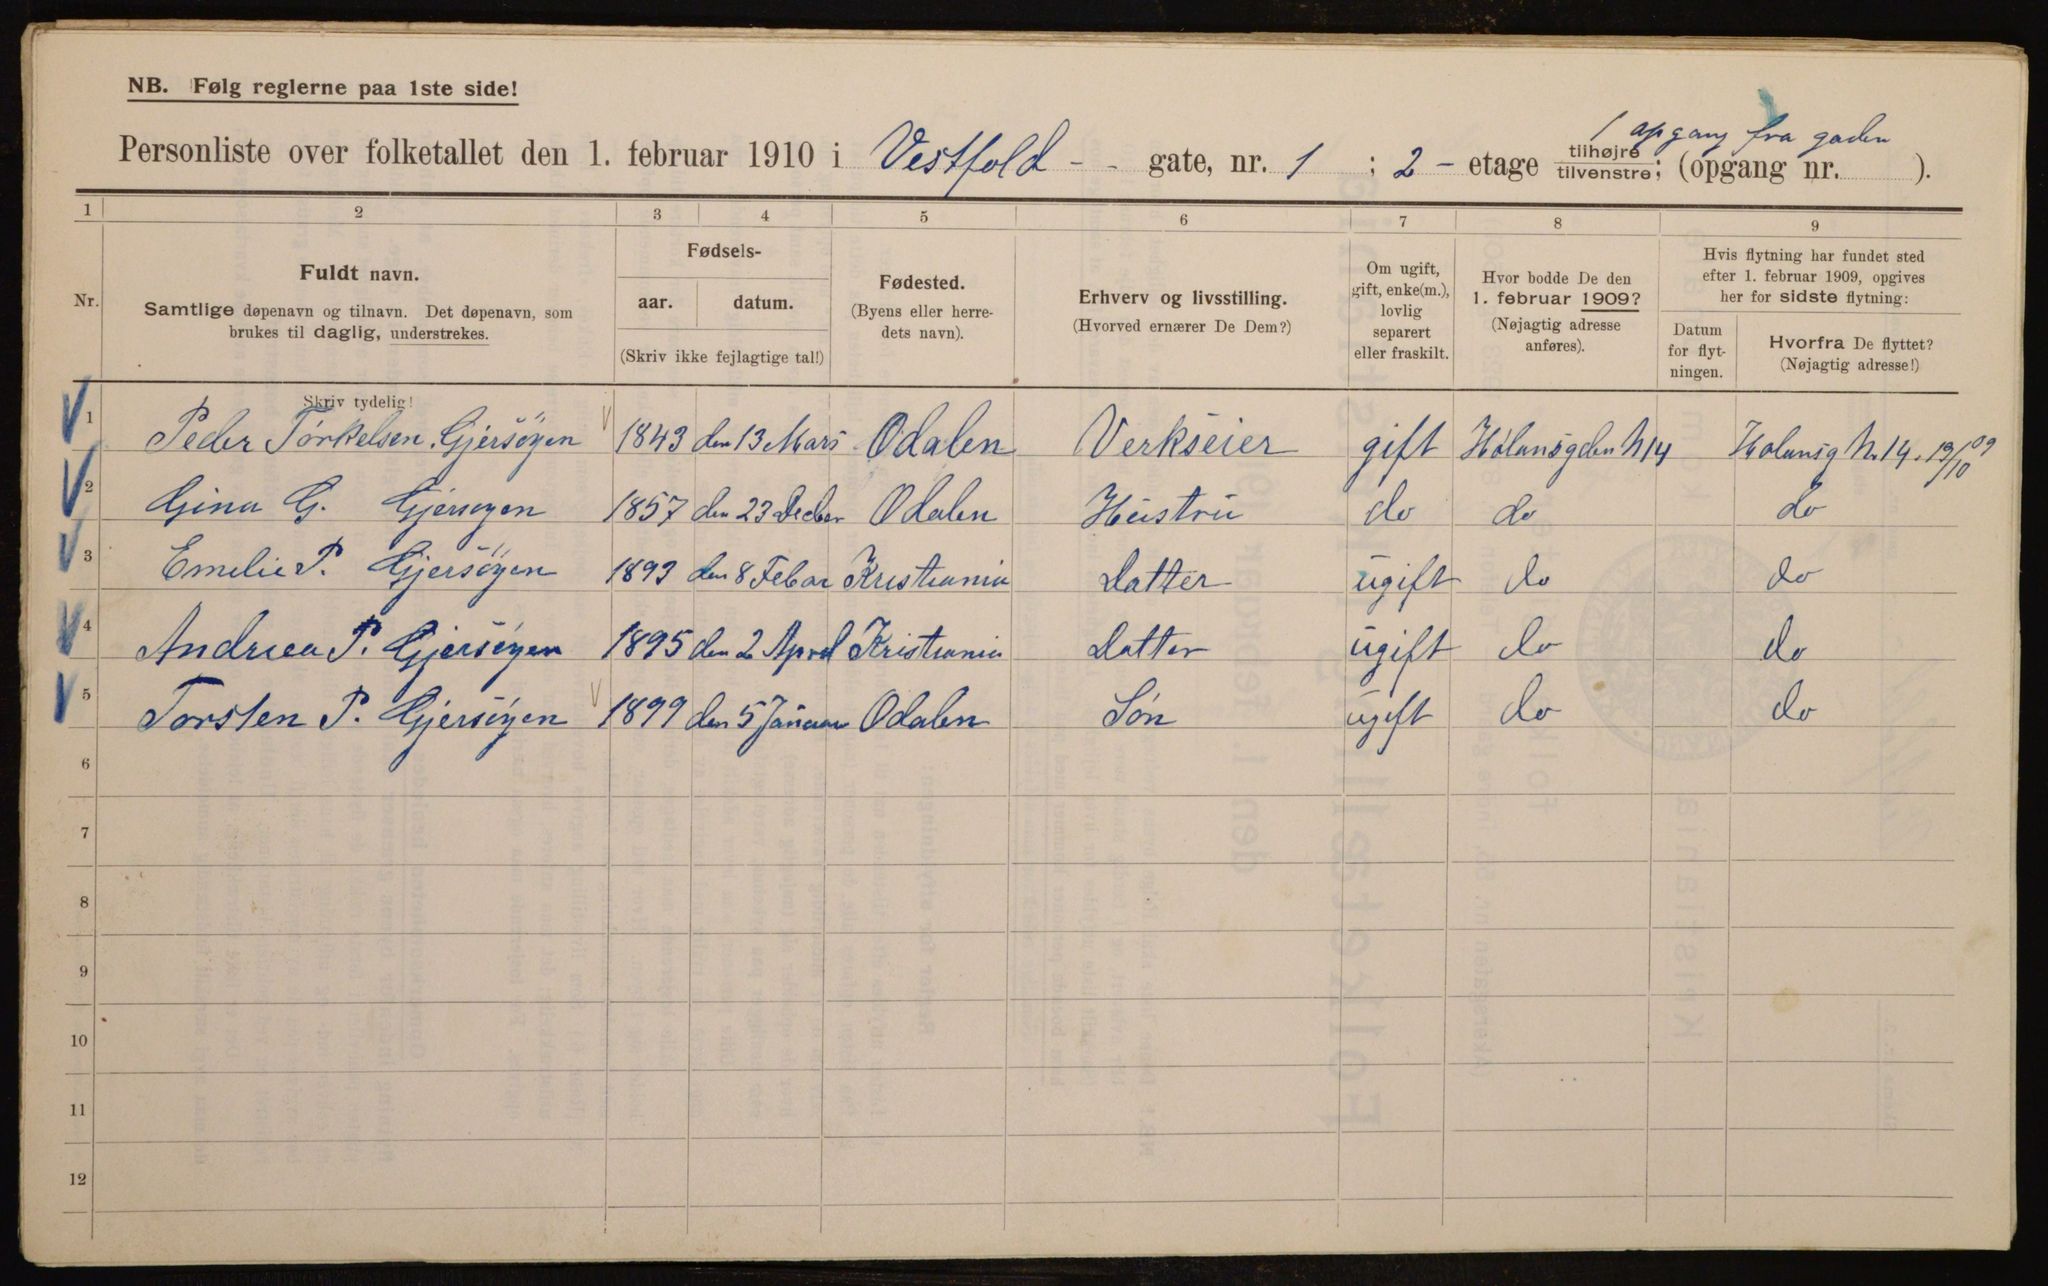 NB. Følg reglerne paa 1ste side!
1 opgang fra gaden
Personliste over folketallet den 1. februar 1910 i Vestfold - - gate, nr. 1 ; 2 - etage tilhøjre tilvenstre; (opgang nr. ).
1 2 3 4 5 6 7 8 9
Nr.
Fuldt navn.
Samtlige døpenavn og tilnavn. Det døpenavn, som
brukes til daglig, understrekes.
Skriv tydelig!
Fødsels-
aar. datum.
(Skriv ikke fejlagtige tal!)
Fødested.
(Byens eller herre-
dets navn).
Erhverv og livsstilling.
(Hvorved ernærer De Dem?)
Om ugift,
gift, enke(m.),
lovlig
separert
eller fraskilt.
Hvor bodde De den
1. februar 1909?
(Nøjagtig adresse
anføres).
Hvis flytning har fundet sted
efter 1. februar 1909, opgives
her for sidste flytning:
Datum
for flyt-
ningen.
Hvorfra De flyttet?
(Nøjagtig adresse!)
1 Peder Törkelsen Gjersöyen 1843 den 13 Mars Odalen Verkseier gift Holunsgden N 14 Holunsg N. 14. 13/10 09
2 Gina G. Gjersoyen 1857 den 23 Decber Odalen Hustru do do do
3 Emelie P. Gjersöyen 1893 den 8 Febar Kristiania Datter ugift do do
4 Andrea P. Gjersöyen 1895 den 2 April Kristiania Datter ugift do do
5 Torsten P. Gjersöyen 1899 den 5 Januar Odalen Sön ugift do do
6
7
8
9
10
11
12